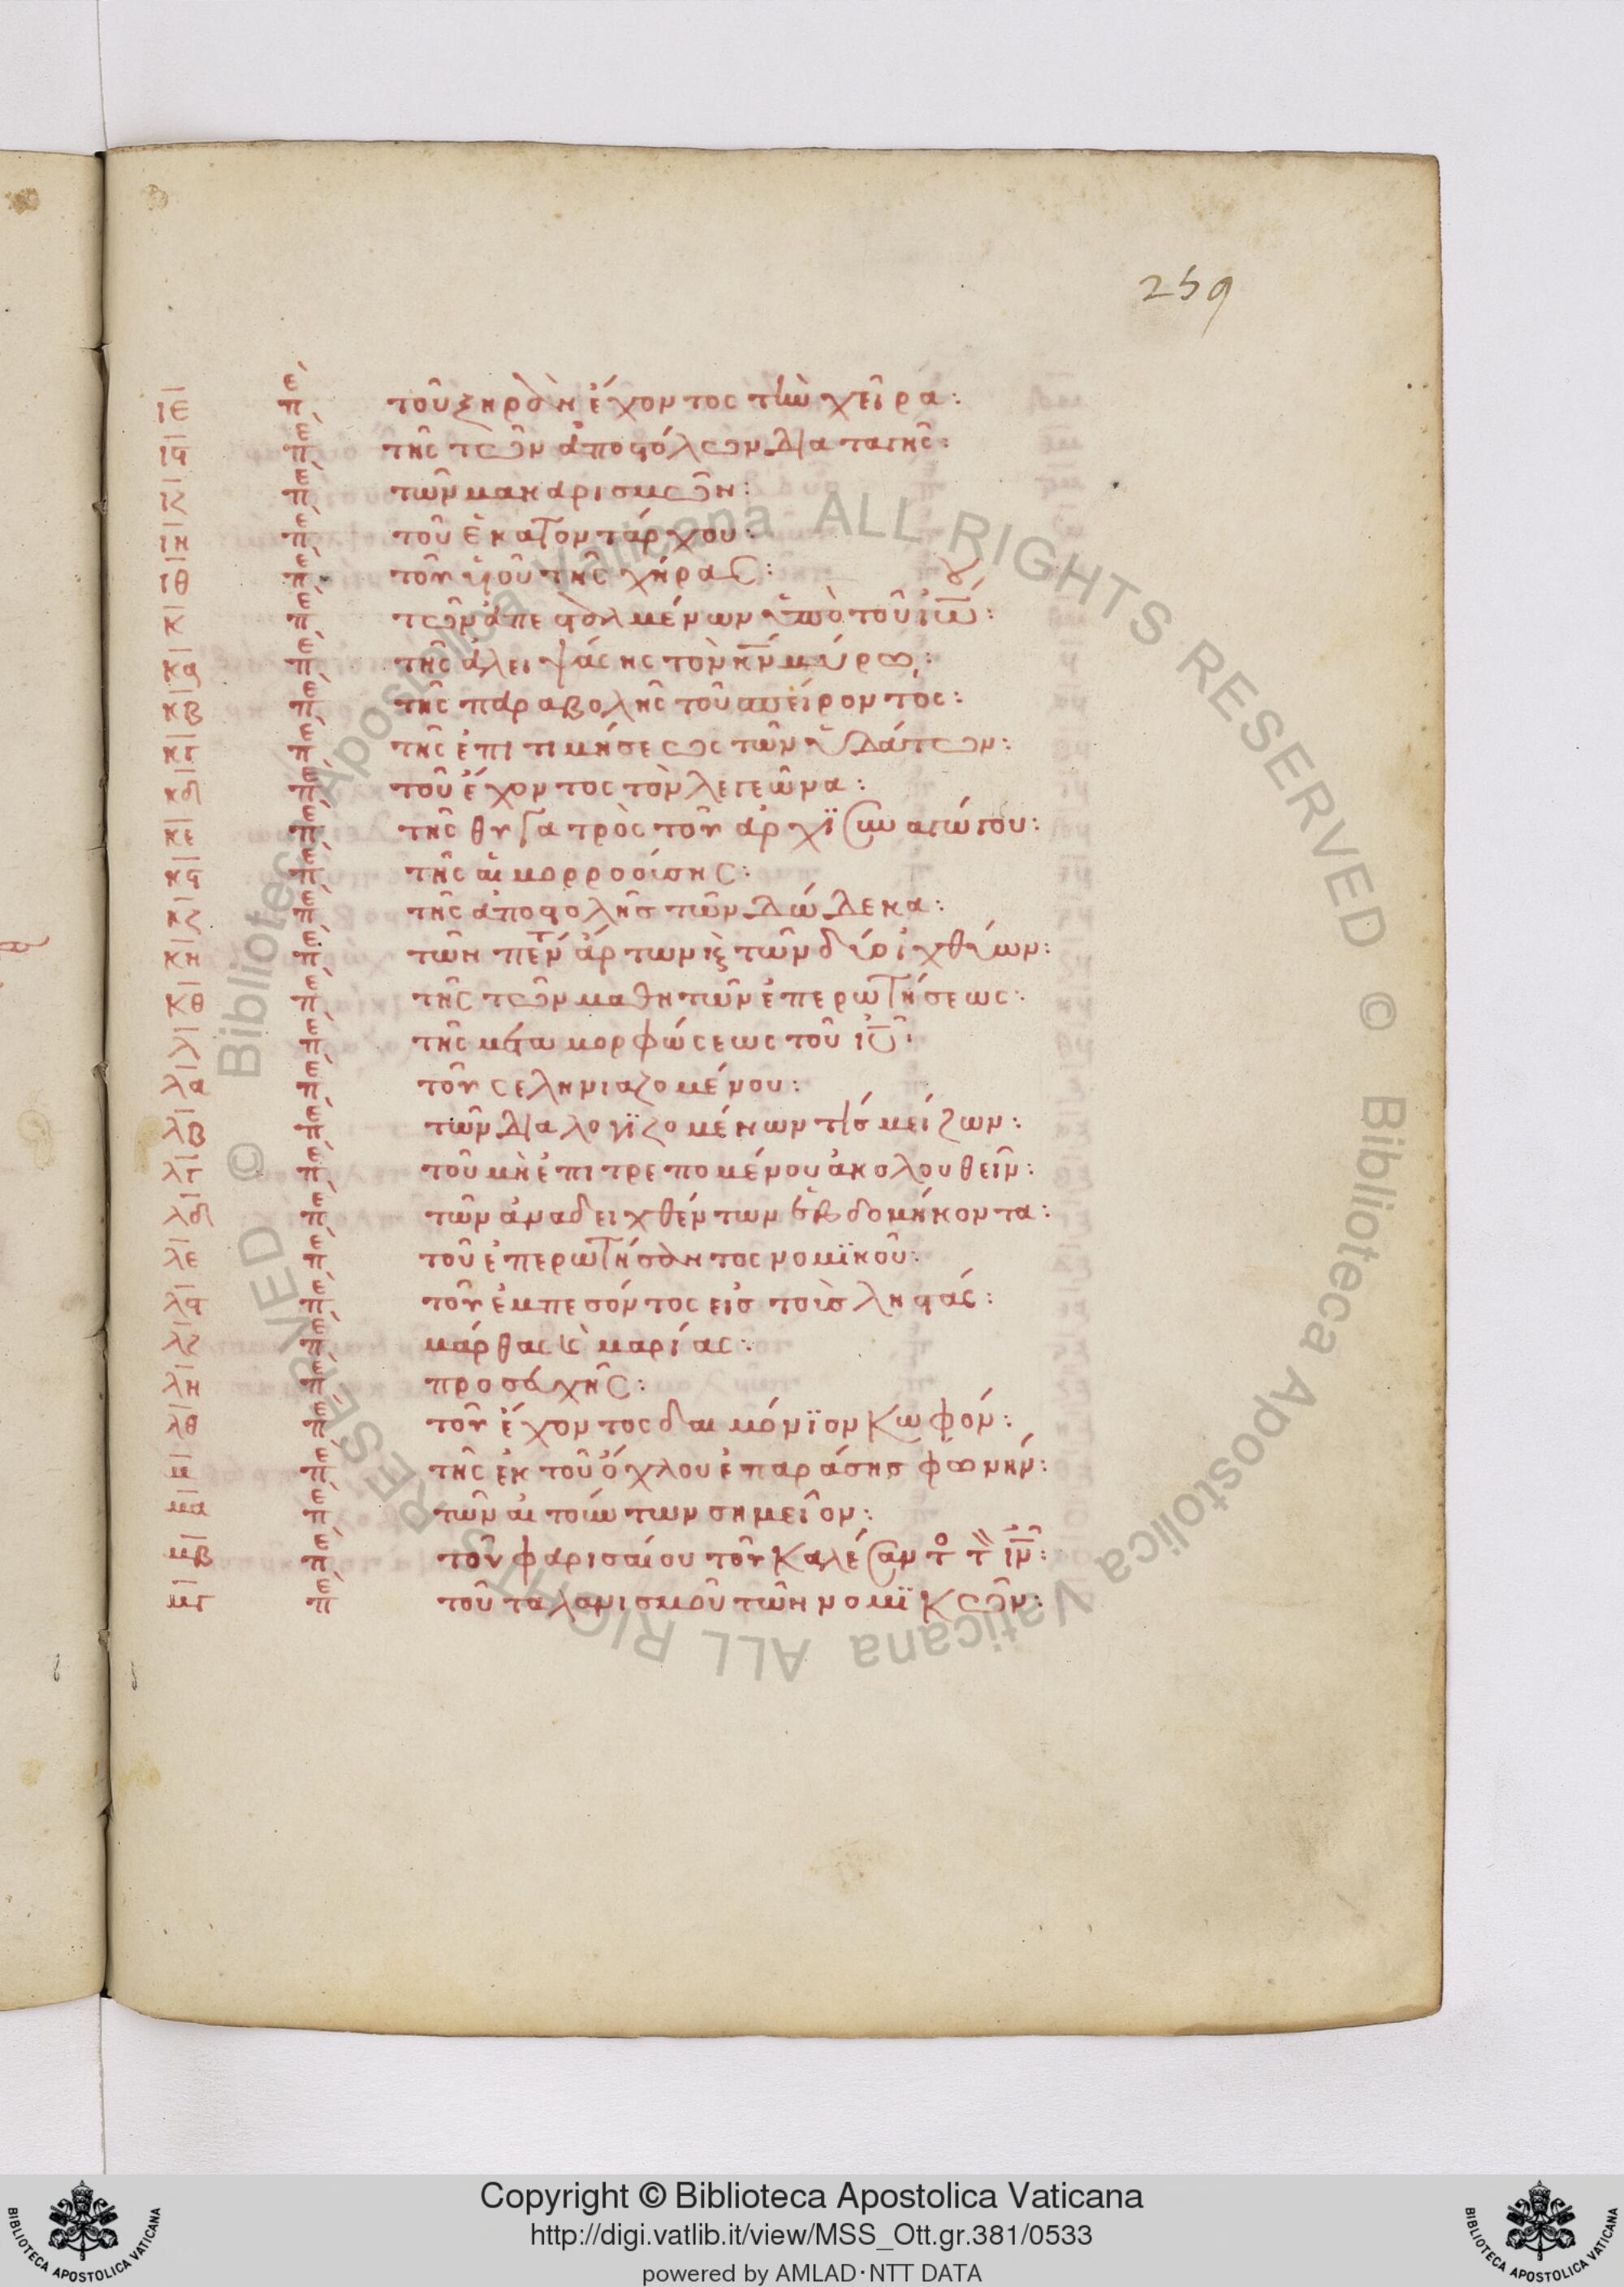 259
ιε πε τοῦ ξηρὰν ἔχοντος τὴν χεῖρα:
ιϛ πε τῆς τῶν ἀποστόλων διαταγῆς:
ιζ πε τῶν μακαρισμῶν:
ιη πε τοῦ ἑκατοντάρχου:
ιθ πε τοῦ υἱοῦ τῆς χήρας:
κ πε τῶν ἀπεσταλμένων ὑπὸ τοῦ ἰω:
κα πε τῆς ἀλειψάσης τὸν κν μύρω:
κβ πε τῆς παραβολῆς τοῦ σπείροντος:
κγ πε τῆς ἐπιτιμήσεως τῶν ὑδάτων:
κδ πε τοῦ ἔχοντος τὸν λεγεῶνα:
κε πε τῆς θυγατρὸς τοῦ ἀρχϊσυναγώγου:
κϛ πε τῆς αἱμορροούσης:
κζ πε τῆς ἀποστολῆς τῶν δώδεκα:
κη πε τῶν πεντ ἄρτων κς τῶν δύο ἰχθύων:
κθ πε τῆς τῶν μαθητῶν ἐπερωτήσεως:
λ πε τῆς μεταμορφώσεως τοῦ ιυ:
λα πε τοῦ σεληνιαζομένου:
λβ πε τῶν διαλογϊζομένων τίς μείζων:
λγ πε τοῦ μὴ ἐπιτρεπομένου ἀκολουθεῖν:
λδ πε τῶν ἀναδειχθέντων ἑβδομήκοντα:
λε πε τοῦ ἐπερωτήσαντος νομϊκοῦ:
λϛ πε τοῦ ἐμπεσόντος εἰς τοὺς ληστάς:
λζ πε μάρθας κς μαρίας:
λη πε προσευχῆς:
λθ πε τοῦ ἔχοντος δαιμόνϊον κωφόν:
μ πε τῆς ἐκ τοῦ ὄχλου ἐπαράσης φωνήν:
μα πε τῶν αἰτούντων σημεῖον:
μβ πε τοῦ φαρισαίου τοῦ καλέσαντο τ ιν:
μγ πε τοῦ ταλανισμοῦ τῶν νομϊκῶν:
Copyright © Biblioteca Apostolica Vaticana
http://digi.vatlib.it/view/MSS_Ott.gr.381/0533
powered by AMLAD·NTT DATA
BIBLIOTECA APOSTOLICA VATICANA
BIBLIOTECA APOSTOLICA VATICANA
© Biblioteca Apostolica Vaticana ALL RIGHTS RESERVED © Biblioteca Apostolica Vaticana ALL RIGHTS RESERVED